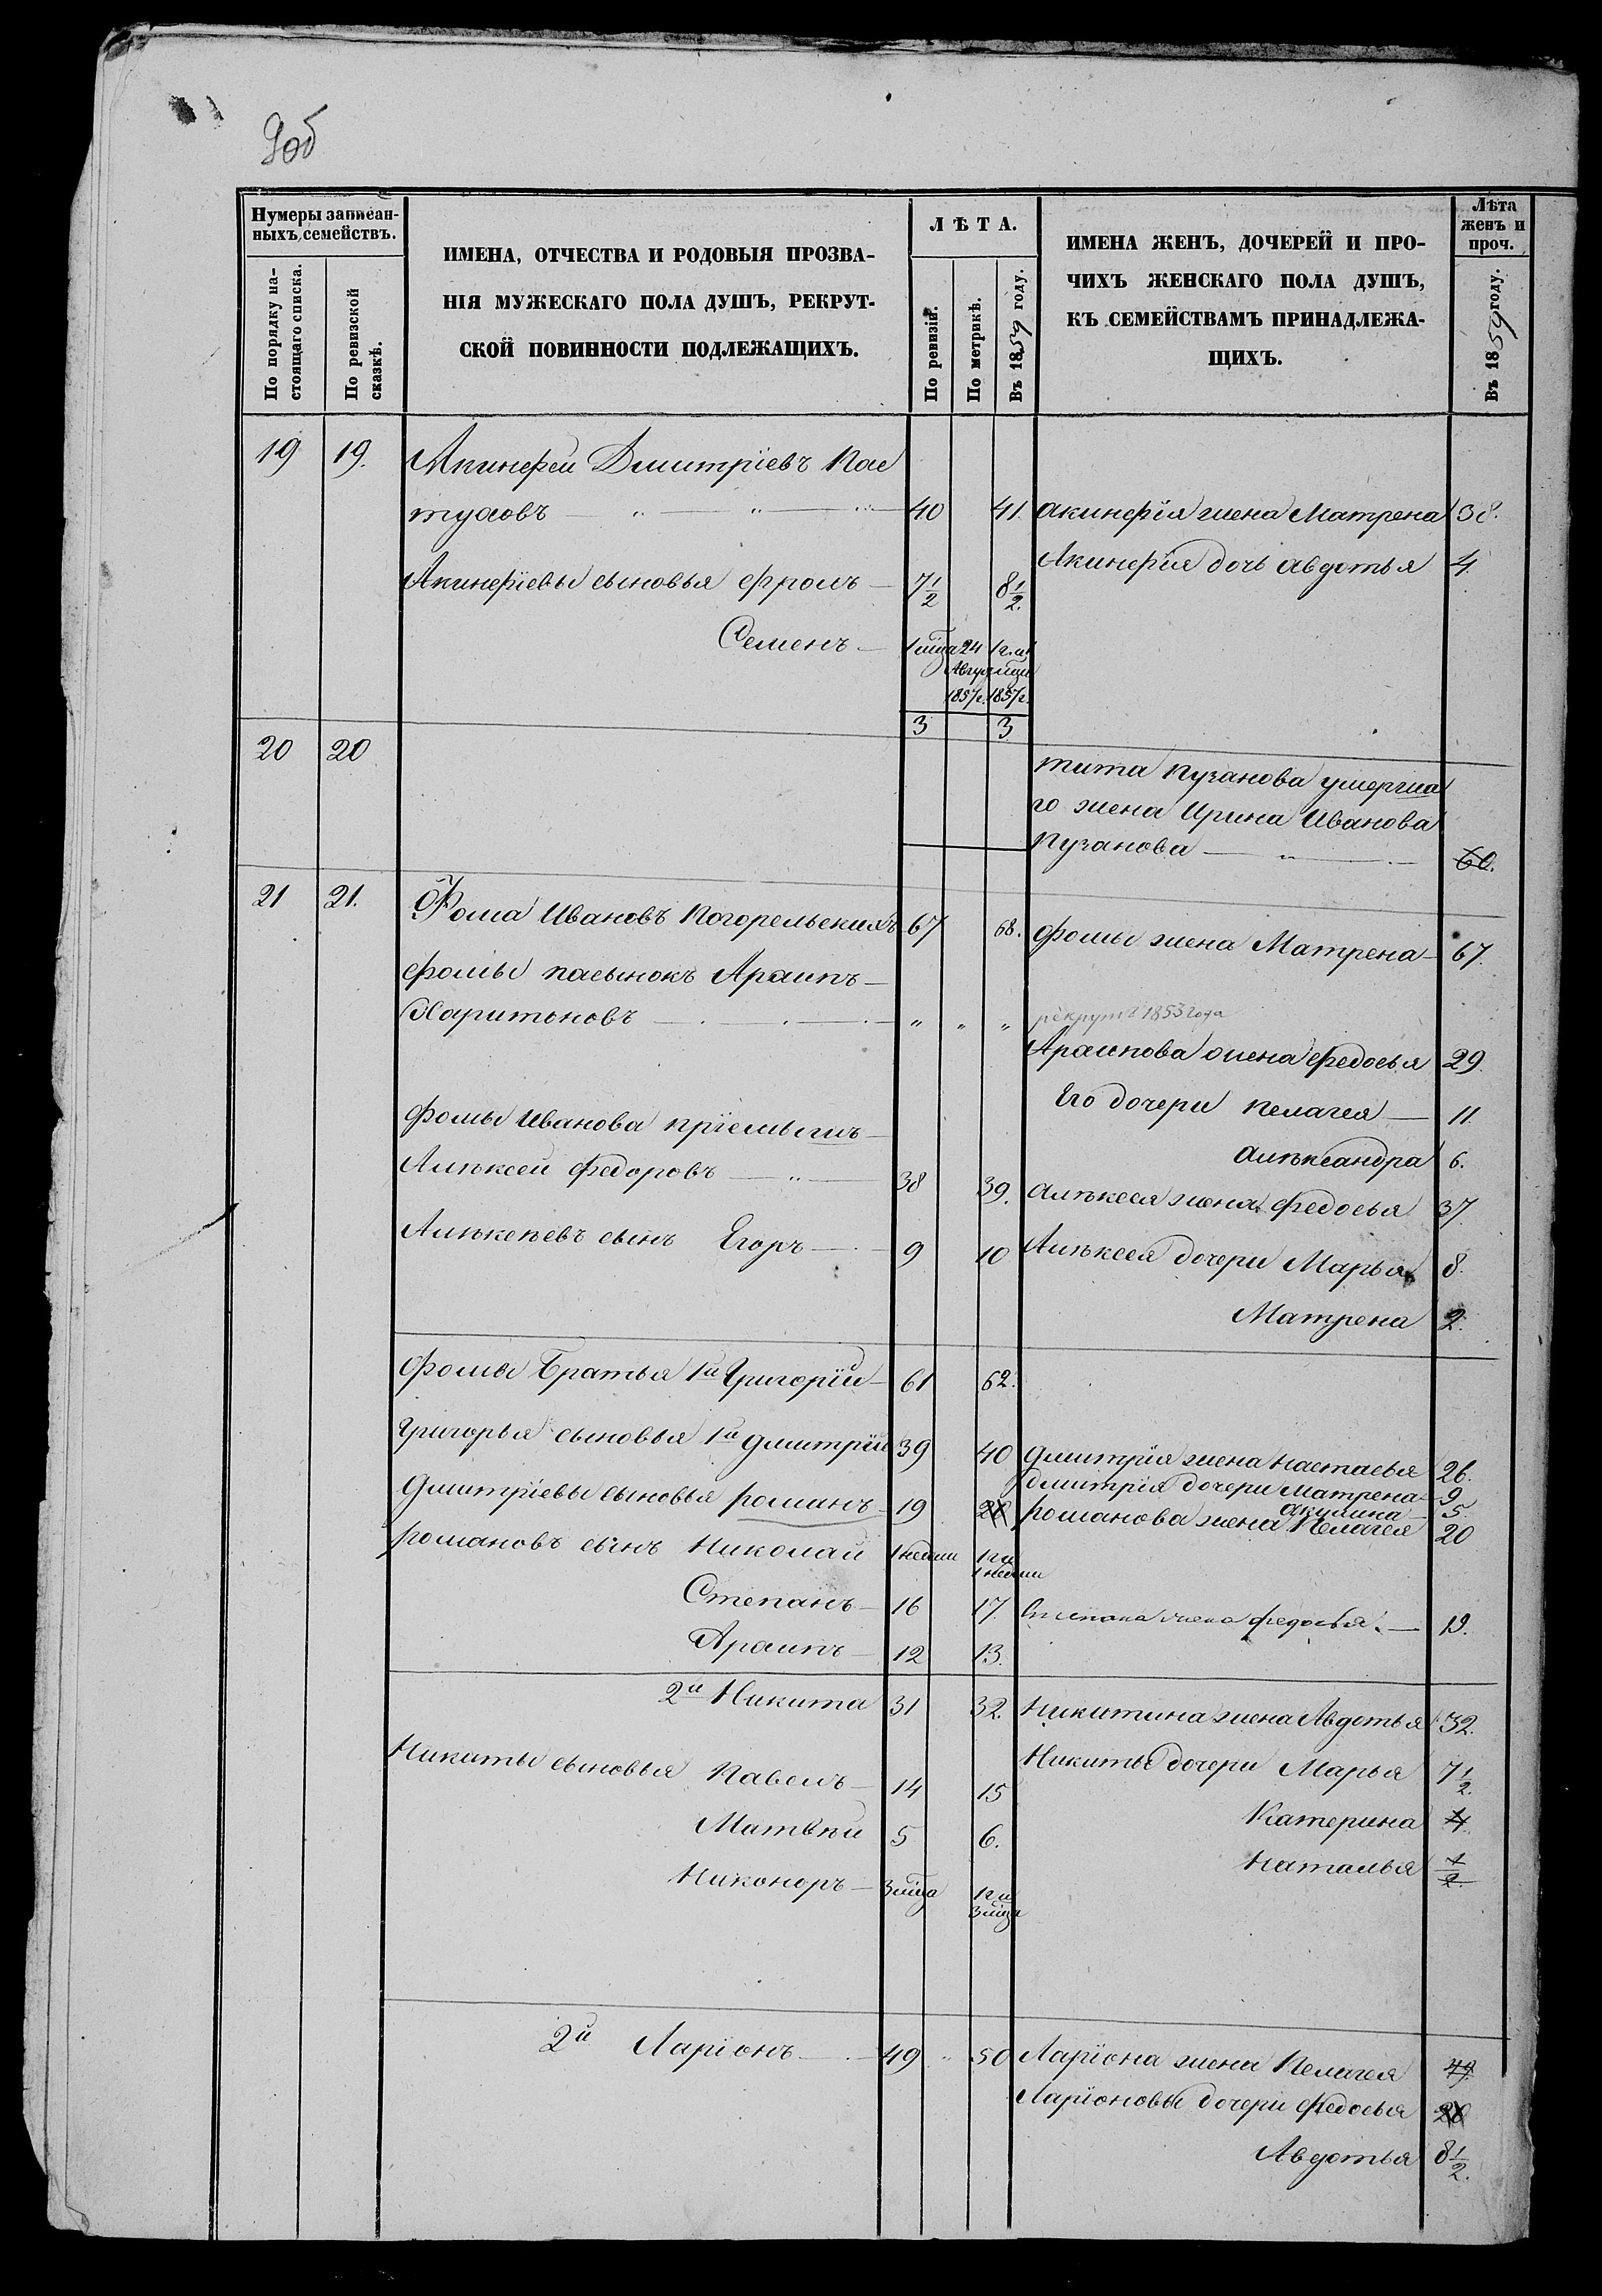 9об
Нумеры записан-
ныхъ семействъ.
По порядку на-
стоящаго списка.
По ревизской
сказкѣ.
ИМЕНА, ОТЧЕСТВА И РОДОВЫЯ ПРОЗВА-
НІЯ МУЖЕСКАГО ПОЛА ДУШЪ, РЕКРУТ-
СКОЙ ПОВИННОСТИ ПОДЛЕЖАЩИХЪ.
ЛѢТА.
По ревизіи.
По метрикѣ.
Въ 1859 году.
ИМЕНА ЖЕНЪ, ДОЧЕРЕЙ И ПРО-
ЧИХЪ ЖЕНСКАГО ПОЛА ДУШЪ,
КЪ СЕМЕЙСТВАМЪ ПРИНАДЛЕЖА-
ЩИХЪ.
Лѣта
женъ и
проч.
Въ 1859 году.
19 19. Акинфеи Дмитріевъ Пас
туховъ 40 41. акинфія жена Матрена 38.
Акинфія дочь авдотья 4.
Акинфіевы сыновья фролъ 7 1/2 8 1/2.
Семенъ 1 мѣца 24 1 г. и 1
Авгу мѣца
1857 г. 1857 г.
3 3
20 20 тита Пузанова умерша
го жена Ирина Иванова
Пузанова 60.
21 21. Фома Ивановъ Погорельскихъ 67 68. фомы жена Матрена 67.
фомы пасынокъ Архипъ
Харитоновъ „ „ „ рекрутъ 1853 года
Архипова жена федосья 29.
Его дочери пелагея 11.
фомы Иванова пріемышъ
алѣксандра 6.
Алѣксеи федоровъ 38 39. алѣксея жена федосья 37.
Алѣксѣевъ сынъ Егоръ 9 10 Алѣксея дочери Марья 8.
Матрена 2.
фомы братья 1й Григорій 61 62.
григорья сыновья 1й дмитрій 39 40 дмитрія жена настасья 26.
дмитрія дочери матрена 9
акулина 5.
Дмитріевы сыновья романъ 19 20 романова жена Пелагея 20
романовъ сынъ Николай 1 недели 1 г. и
1 недели
Степанъ 16 17. Степана жена федосья. 19.
Архипъ 12 13.
2й Никита 31 32. Никитина жена Авдотья 32.
Никиты дочери Марья 7 1/2.
Никиты сыновья Павелъ 14 15
Катерина 4.
Матвѣи 5 6.
Наталья 1/2.
Никоноръ 3 мѣца 1 г. и
3 мѣца
2й Ларіонъ 49 50 Ларіона жена Пелагея 49.
Ларіоновы дочери федосья 20
Авдотья 8 1/2.